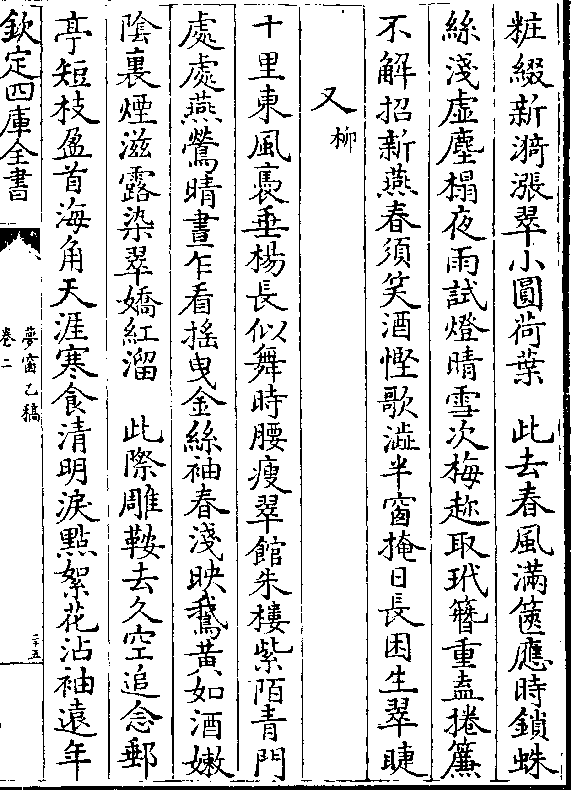 粧綴新漪漲翠小圓荷葉　此去春風滿篋應時鎖蛛
絲淺虚塵榻夜雨試燈晴雪次梅趂取玳簪重盍捲簾
不解招新燕春須笑酒慳歌澁半窗掩日長困生翠睫
又柳
十里東風褭垂楊長似舞時腰瘦翠館朱樓紫陌青門
處處燕鶯晴晝乍看搖曳金絲袖春淺映鵞黄如酒嫩
隂裏煙滋露染翠嬌紅溜　此際雕鞍去久空追念郵
亭短枝盈首海角天涯寒食清明淚點絮花沾袖遠年
欽定四庫全書
夢窗乙稿
卷二
二十五